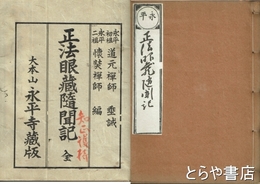 永平初祖 道元禅師 垂誡
永平二祖 懐奘禅師 編
正法眼藏隨聞記 全
大本山 永平寺藏版
永平
正法眼蔵随聞記
とらや書店